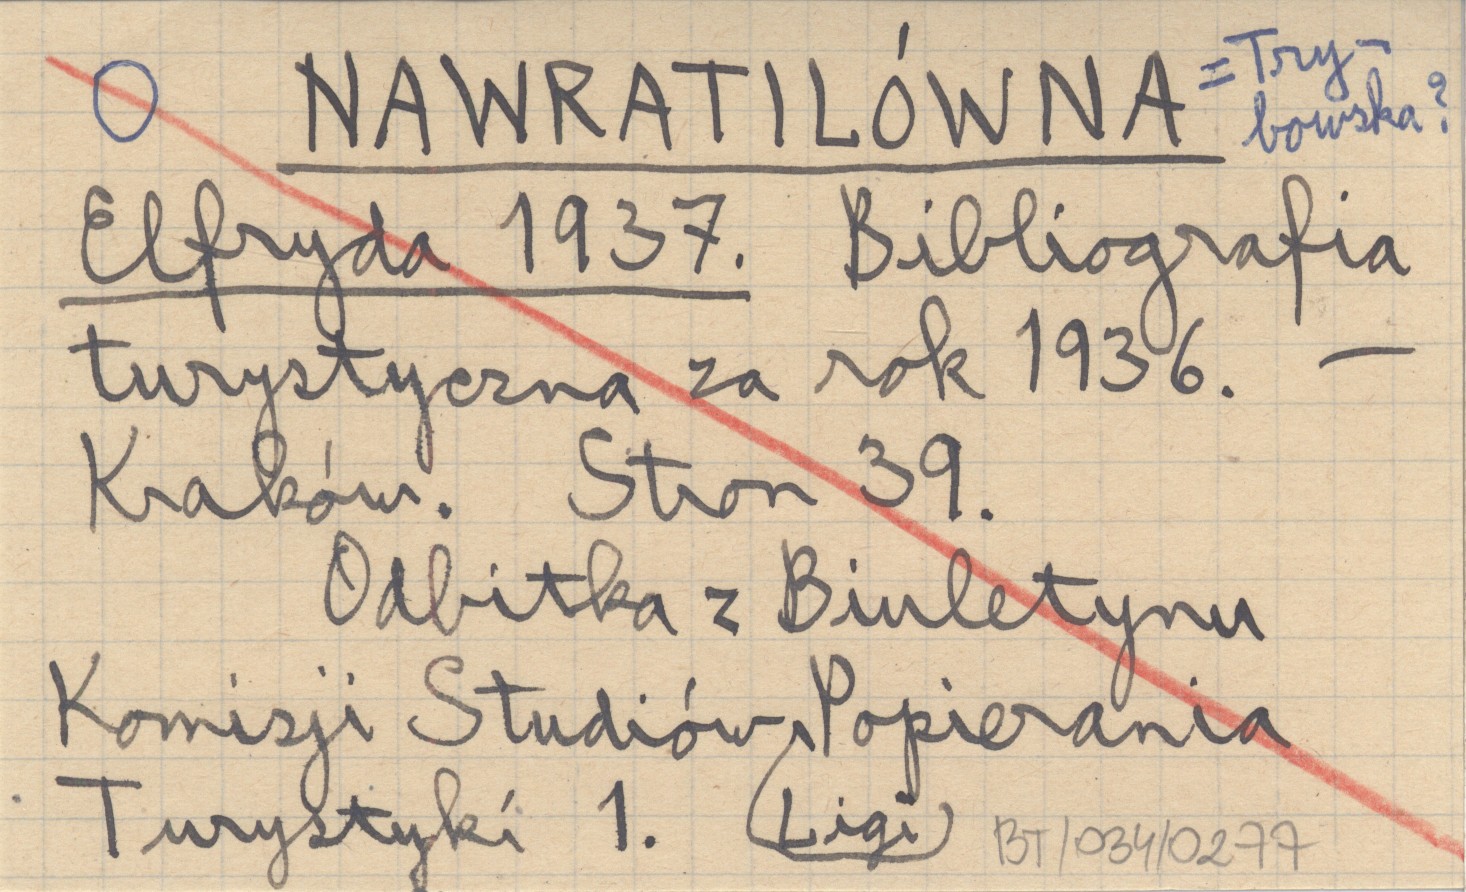 NAWRATILÓWNA = Try-
bowska?
Elfryda 1937. Bibliografia
turystyczna za rok 1936. —
Kraków. Stron 39.
Odbitka z Biuletynu
Komisji Studiów Popierania
Turystyki 1. (Ligi)
BT/034/0277